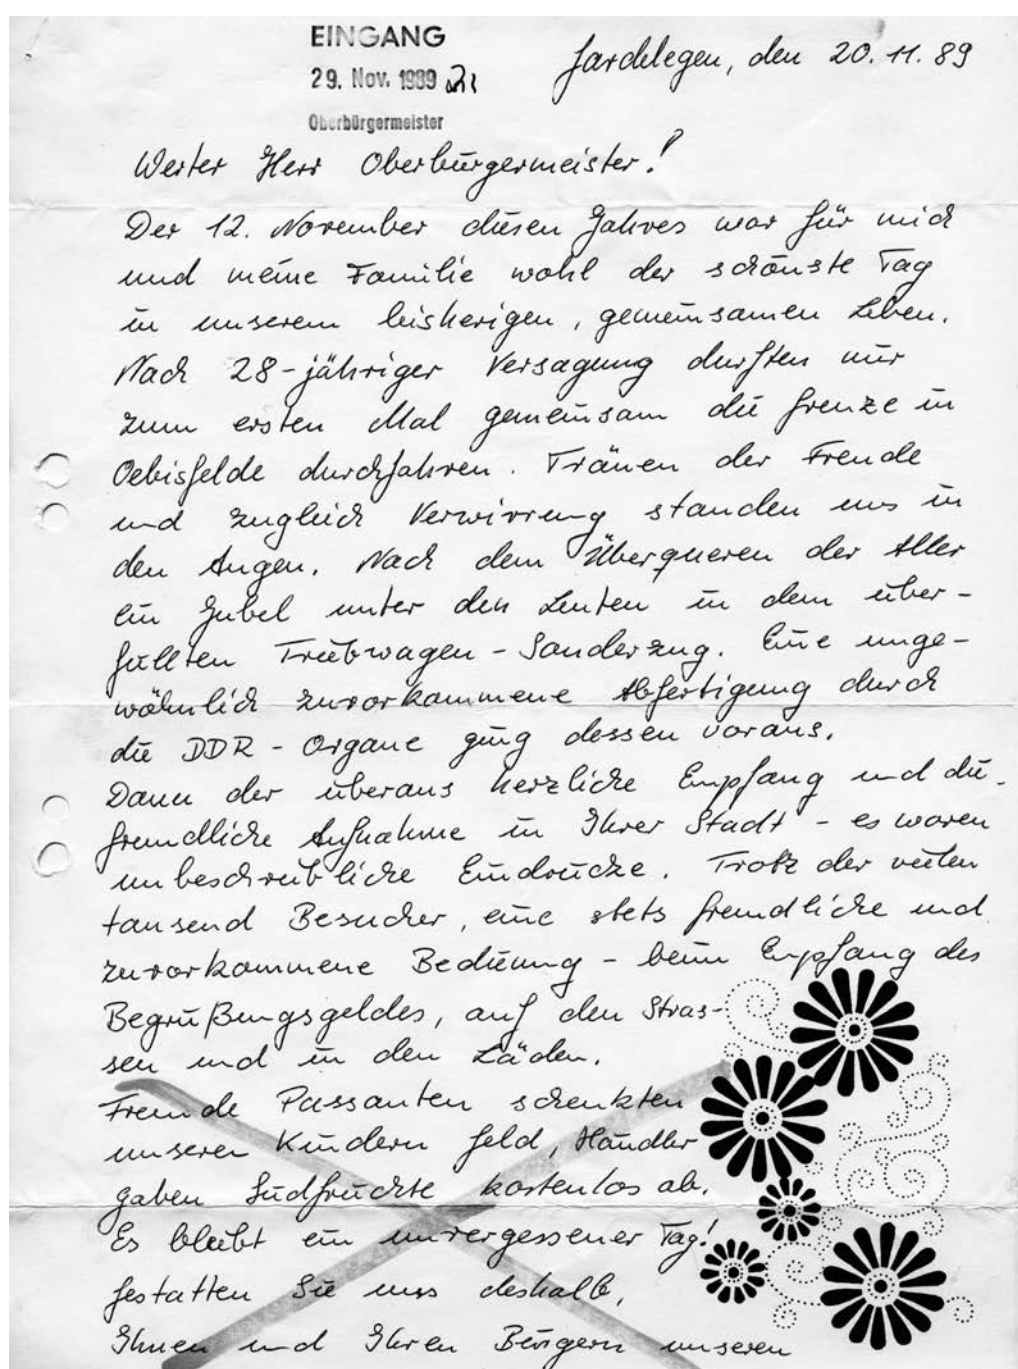 EINGANG
29. Nov. 1989
Oberbürgermeister
Gardelegen, den 20.11.89
Werter Herr Oberbürgermeister!
Der 12. November diesen Jahres war für mich
und meine Familie wohl der schönste Tag
in unserem bisherigen, gemeinsamen Leben.
Nach 28-jähriger Versagung durften wir
zum ersten Mal gemeinsam die Grenze in
Oebisfelde durchfahren. Tränen der Freude
und zugleich Verwirrung standen uns in
den Augen. Nach dem Überqueren der Aller
ein Jubel unter den Leuten in dem über-
füllten Triebwagen-Sonderzug. Eine unge-
wöhnlich zuvorkommene Abfertigung durch
die DDR-Organe ging dessen voraus.
Dann der überaus herzliche Empfang und die
freundliche Aufnahme in Ihrer Stadt - es waren
unbeschreibliche Eindrücke. Trotz der vielen
tausend Besucher, eine stets freundliche und
zuvorkommene Bedienung - beim Empfang des
Begrüßungsgeldes, auf den Stras-
sen und in den Läden.
Fremde Passanten schenkten
unseren Kindern Geld, Händler
gaben Südfrüchte kostenlos ab.
Es bleibt ein unvergessener Tag!
Gestatten Sie uns deshalb,
Ihnen und Ihren Bürgern unseren